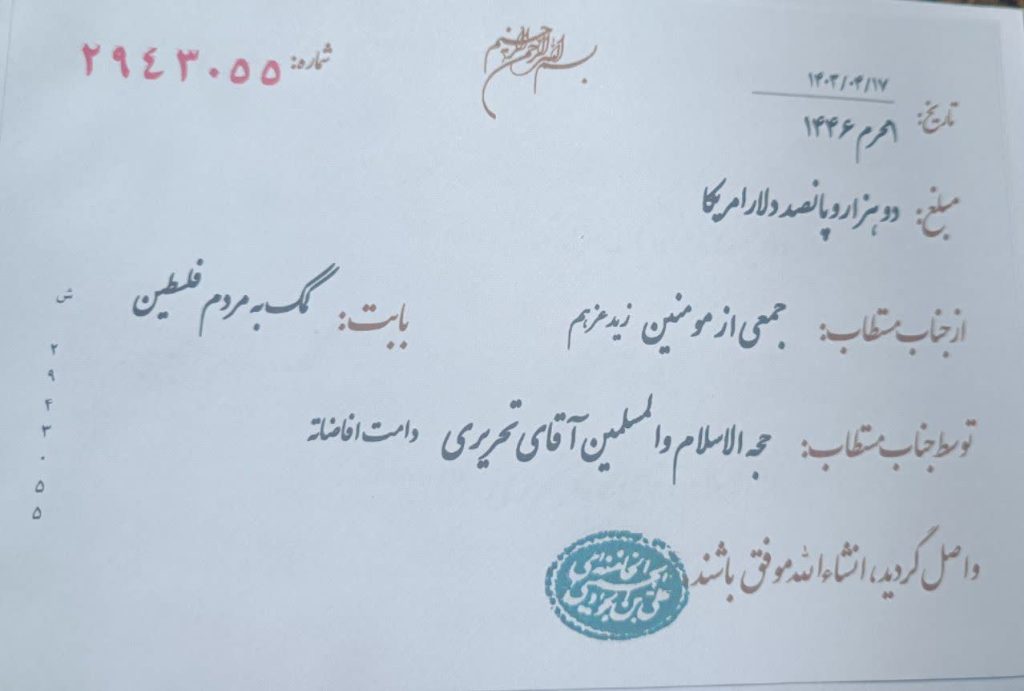 بسم الله الرحمن الرحیم
شماره: ۲۹٤۳۰۵۵
تاریخ: ۱۴۰۳/۰۴/۱۷
۱محرم ۱۴۴۶
مبلغ: دو هزار و پانصد دلار امریکا
از جناب مستطاب: جمعی از مومنین زید عزهم بابت: کمک به مردم فلسطین
توسط جناب مستطاب: حجه الاسلام والمسلمین آقای تحریری دامت افاضاته
واصل گردید، انشاءالله موفق باشند
علی بن الجواد الحسینی الخامنه‌ای
ش
۲
۹
۴
۳
۰
۵
۵